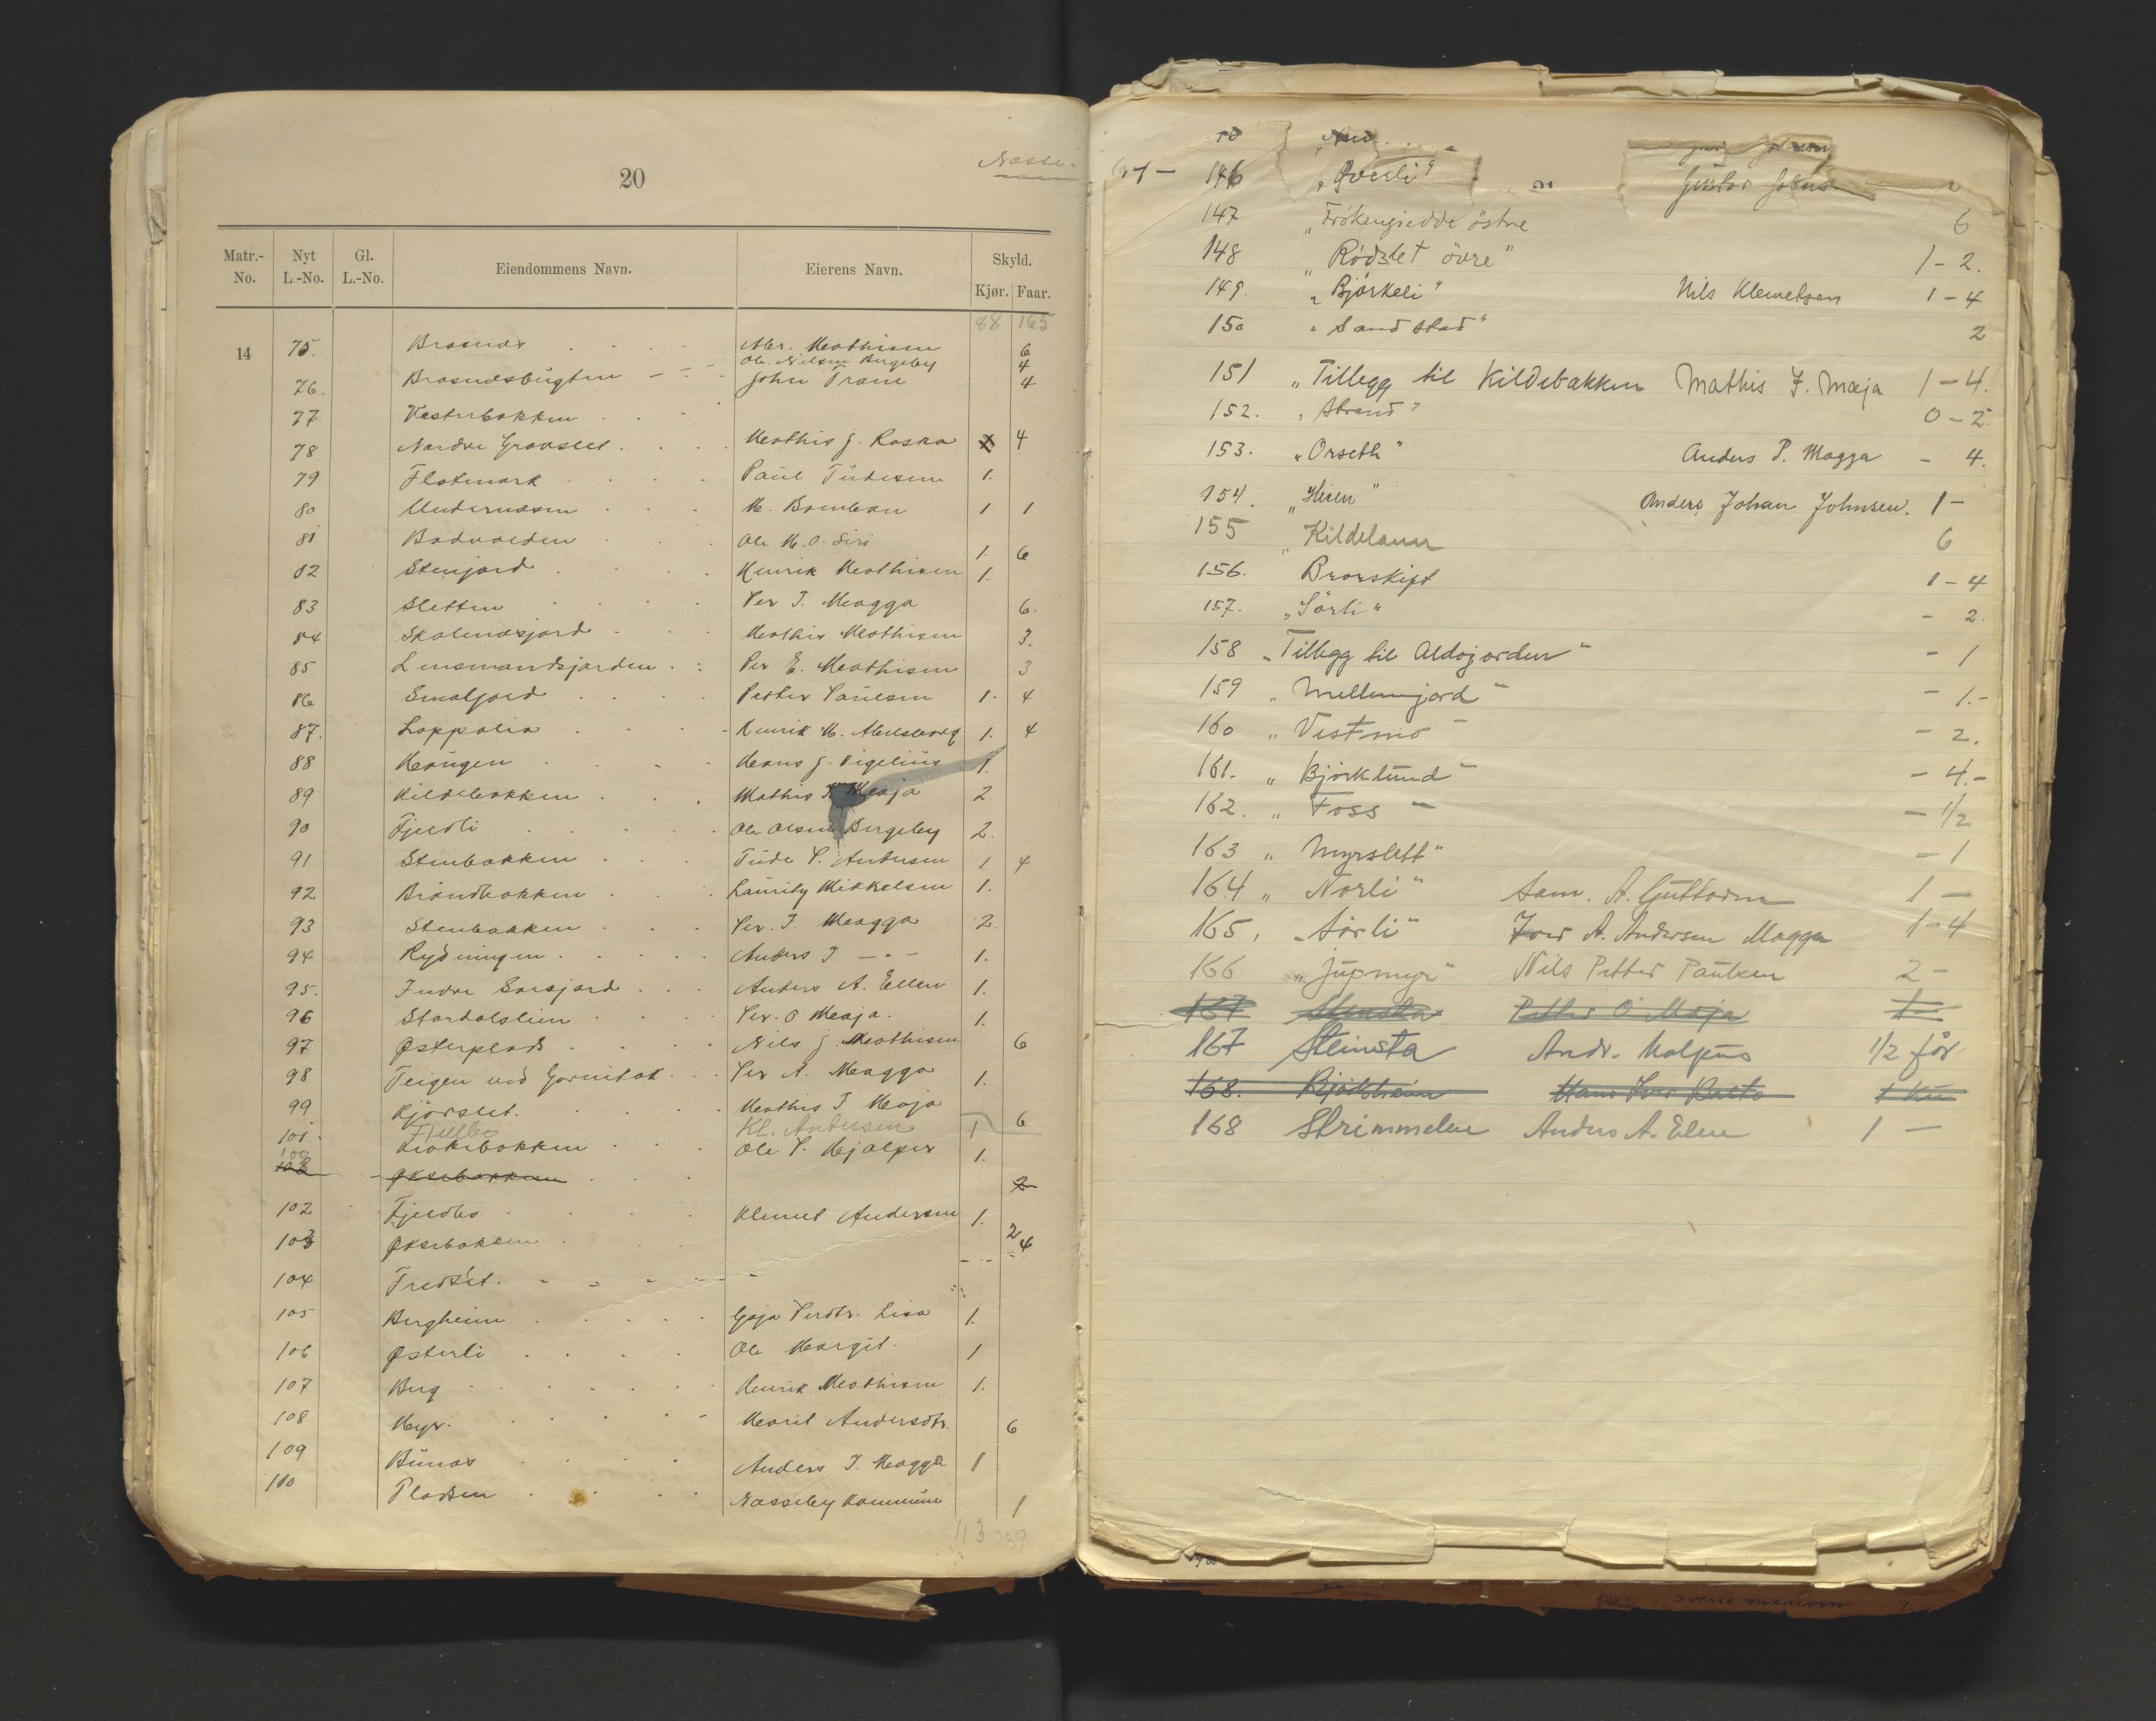 20
Matr.-No. Nyt L.-No. Gl. L.-No. Eiendommens Navn. Eierens Navn. Skyld. Kjør. Faar.
88 165
14 75. Brasnæs Abr. Mathisen 6
Ole Nilsen Bergeby 4
76. Brasnæsbugten John Trane 4
77 Vesterbakken
78 Nordre Mathis J. Raska 4
79 Flatmark Paul 1.
80 M. Bomban 1 1
81 Ole M. O. Siri 1. 6
82 Stenjord Henrik Mathisen 1.
83 Sletten Per J. Magga 6.
84 Skalnæsjord Mathis Mathisen 3.
85 Lensmandsjorden Per E. Mathisen 3
86 Smaljord Petter Paulsen 1. 4
87. Loppolia Henrik M. 1. 4
88 Haugen Hans J. Vigelius 1.
89 Kildebakken Mathis Maja 2.
90 Fjeldli Ole Olsen Bergeby 2.
91 Stenbakken Tude P. Andersen 1 4
92 Laurity Mikkelsen 1.
93 Stenbakken Per. J Magga 2.
94 Rydningen Anders J — " — 1.
95. Indre Anders A. Ellen 1.
96 Stordalslien Per. O Maja. 1.
97 Østerplads Nils J. Mathisen 6
98 Teigen ved Per A. Magga 1.
99 Kjørslet. Mathis J Maja 6
101. Kl. Andersen 1
100 Ole P. Hjalper 1.
Øksebakken 2
102 Fjeldbo Klemet Andersen 1.
103 Øksebakken 2
4
104 Fredslet.
105 Bergheim Gaja Persdtr. Lisa 1.
106 Østerli Ole Margit. 1
107 Berg Henrik Mathisen 1.
108 Myr. Marit Andersdtr. 6
109 Bunæs Anders J. Magga 1
110 Pladsen Næsseby Kommune 1
113 339
146 Gustav
147 „Frökengiedde östre 6
148 „Rödslet övre" 1 – 2.
149. „Björkeli" Nils Klemetsen 1 – 4
150 „Sandstad" 2
151 „Tillegg til Kildebakken Mathis J. Maja 1 – 4.
152. „Strand" 0 – 2.
153. „Orseth" Anders P. Magga – 4.
154. „Heien" Anders Johan Johnsen. 1 –
155 „Kildelann 6
156. Brorskift 1 – 4
157. „Sörli" – 2.
158 „Tillegg til Aldojorden" – 1
159 „Mellemjord" – 1.–
160 „Vestmo" – 2.
161. „Björklund" – 4.–
162. „Foss" – 1/2
163 „Myrslett" – 1
164 „Norli" Sam. A. Guttorm 1 –
165, „Sörli" Iver A. Andersen Magga 1 – 4
166 „Jupmyr" Nils Petter Paulsen 2 –
167 Stensta Petter O. Maja 1 –
167 Steinsta Andr. Halpus 1/2 får
168. Björkheim Hans Iver Balto 1 ku
168 Strimmelen Anders A. Elen 1 –